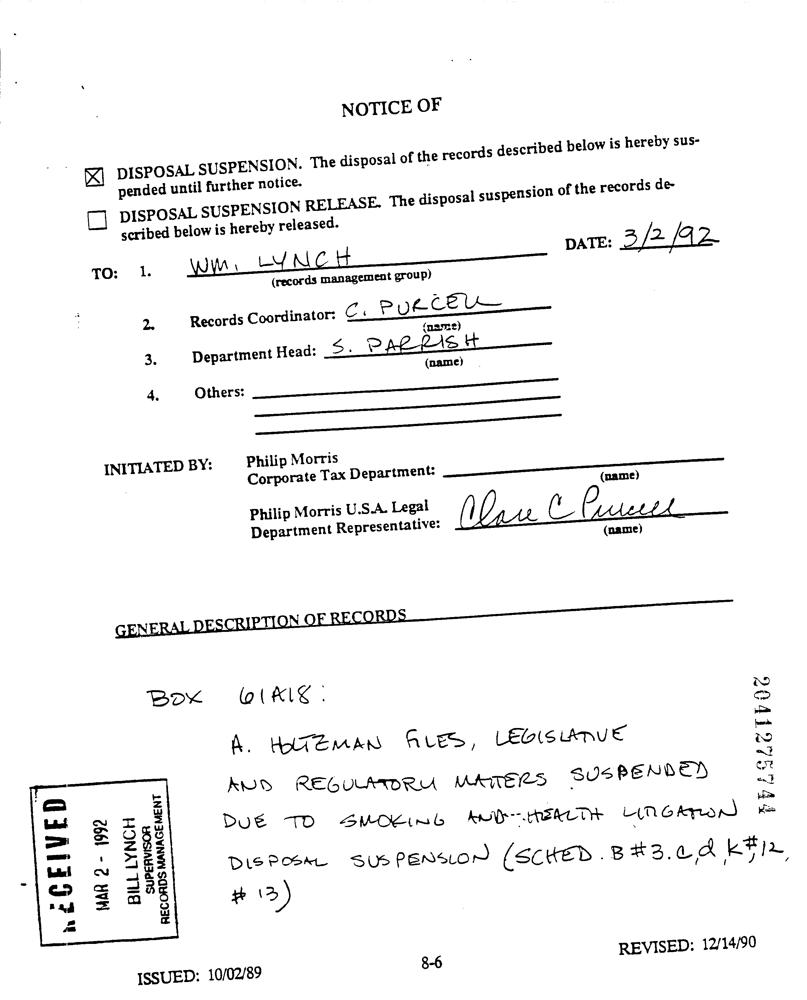 NOTICE OF
☒ DISPOSAL SUSPENSION. The disposal of the records described below is hereby sus-
pended until further notice.
☐ DISPOSAL SUSPENSION RELEASE. The disposal suspension of the records de-
scribed below is hereby released.
DATE: 3/2/92
TO: 1. WM. LYNCH
(records management group)
2. Records Coordinator: C. PURCELL
(name)
3. Department Head: S. PARRISH
(name)
4. Others:
INITIATED BY: Philip Morris
Corporate Tax Department:
(name)
Philip Morris U.S.A. Legal
Department Representative: Clare C Purcell
(name)
GENERAL DESCRIPTION OF RECORDS
BOX 61A18:
A. HOLTZMAN FILES, LEGISLATIVE
AND REGULATORY MATTERS SUSPENDED
DUE TO SMOKING AND HEALTH LITIGATION
DISPOSAL SUSPENSION (SCHED. B #3.c,d,k #12,
#13)
2041275744
RECEIVED
MAR 2 - 1992
BILL LYNCH
SUPERVISOR
RECORDS MANAGEMENT
ISSUED: 10/02/89
8-6
REVISED: 12/14/90